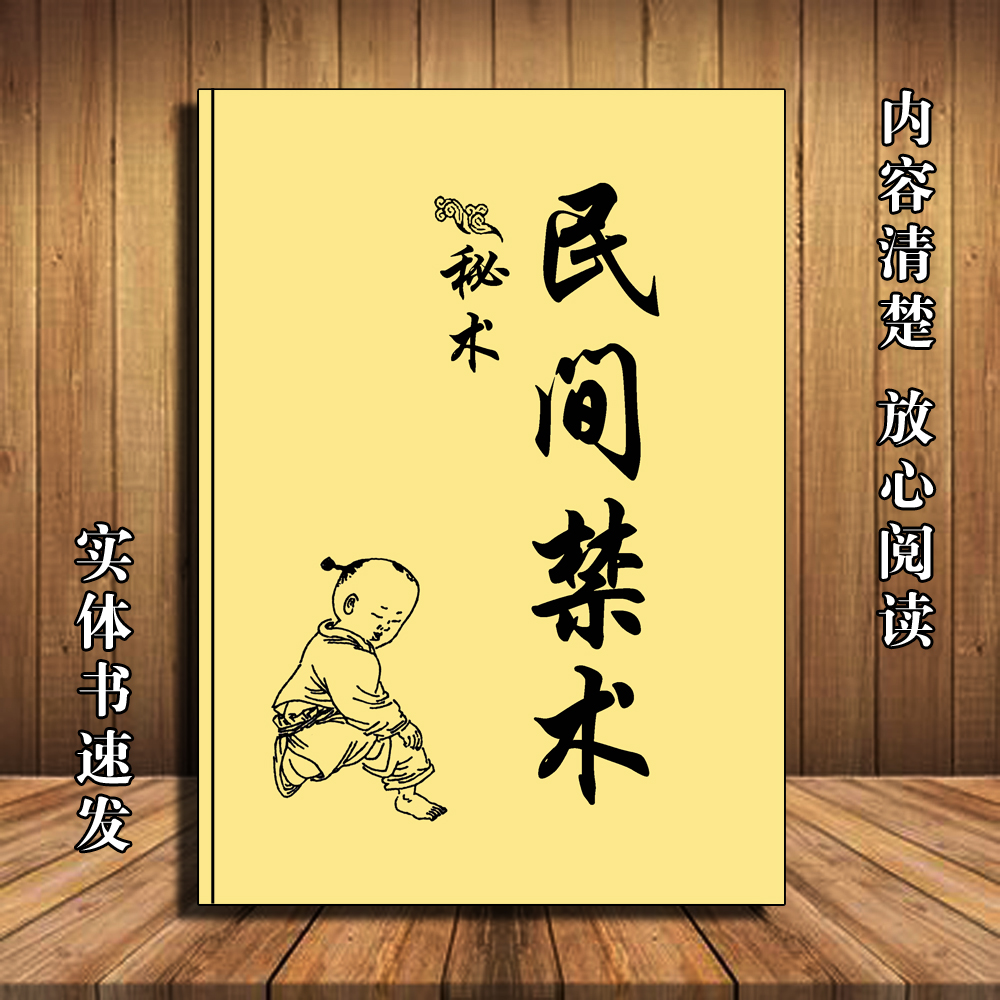 民间禁术
秘术
内容清楚 放心阅读
实体书速发